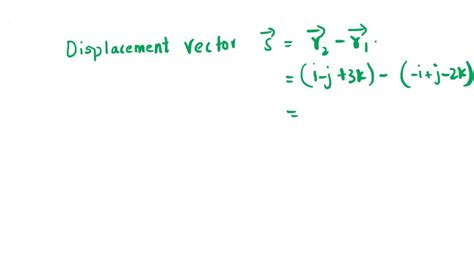 Displacement vector s⃗ = r⃗₂ - r⃗₁.
= (i-j+3k) - (-i+j-2k)
=